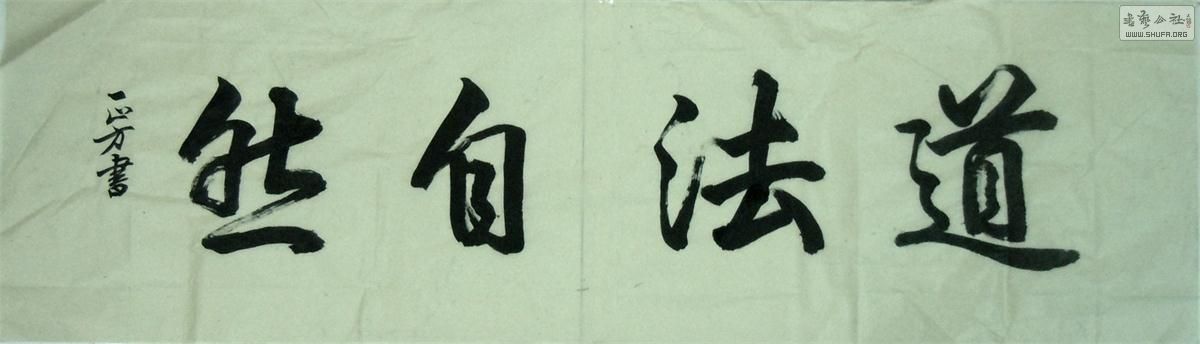 道法自然
正方書
書藝公社
WWW.SHUFA.ORG